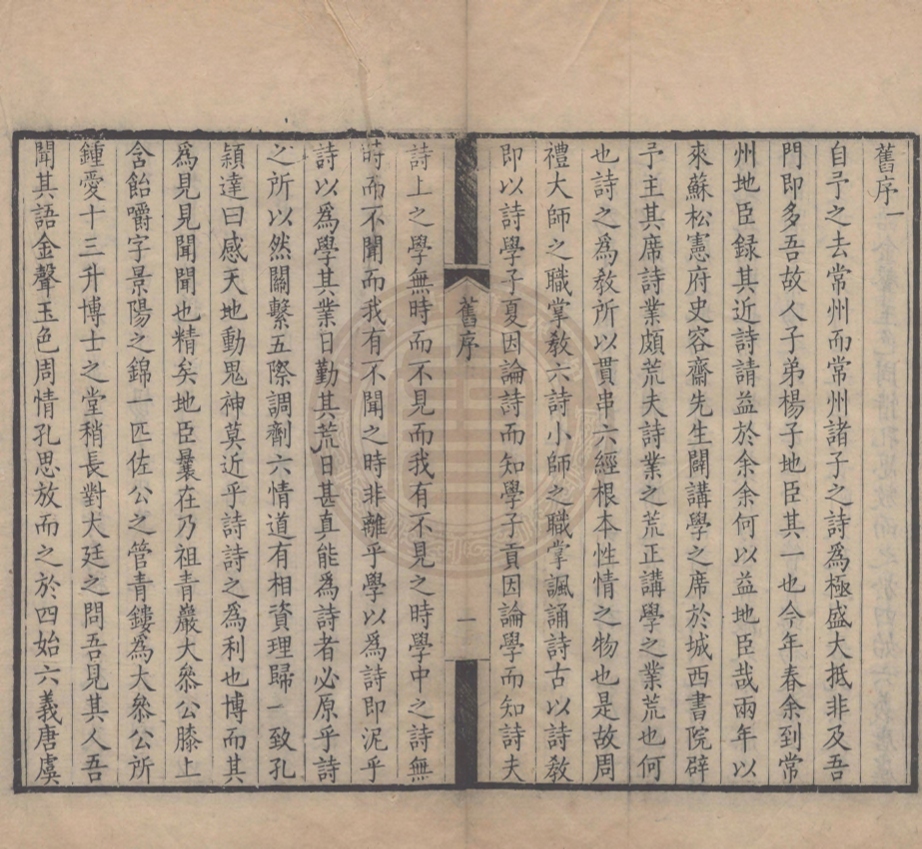 舊序一
自予之去常州而常州諸子之詩爲極盛大抵非及吾
門即多吾故人子弟楊子地臣其一也今年春余到常
州地臣録其近詩請益於余余何以益地臣哉兩年以
來蘇松憲府史容齋先生闢講學之席於城西書院辟
予主其席詩業頗荒夫詩業之荒正講學之業荒也何
也詩之爲敎所以貫串六經根本性情之物也是故周
禮大師之職掌敎六詩小師之職掌諷誦詩古以詩敎
即以詩學子夏因論詩而知學子貢因論學而知詩夫
舊序
一
詩上之學無時而不見而我有不見之時學中之詩無
時而不聞而我有不聞之時非離乎學以爲詩即泥乎
詩以爲學其業日勤其荒日甚真能爲詩者必原乎詩
之所以然關繫五際調劑六情道有相資理歸一致孔
穎達曰感天地動鬼神莫近乎詩詩之爲利也博而其
爲見見聞聞也精矣地臣曩在乃祖青巖大叅公膝上
含飴嚼字景陽之錦一匹佐公之管青鏤爲大叅公所
鍾愛十三升博士之堂稍長對大廷之問吾見其人吾
聞其語金聲玉色周情孔思放而之於四始六義唐虞